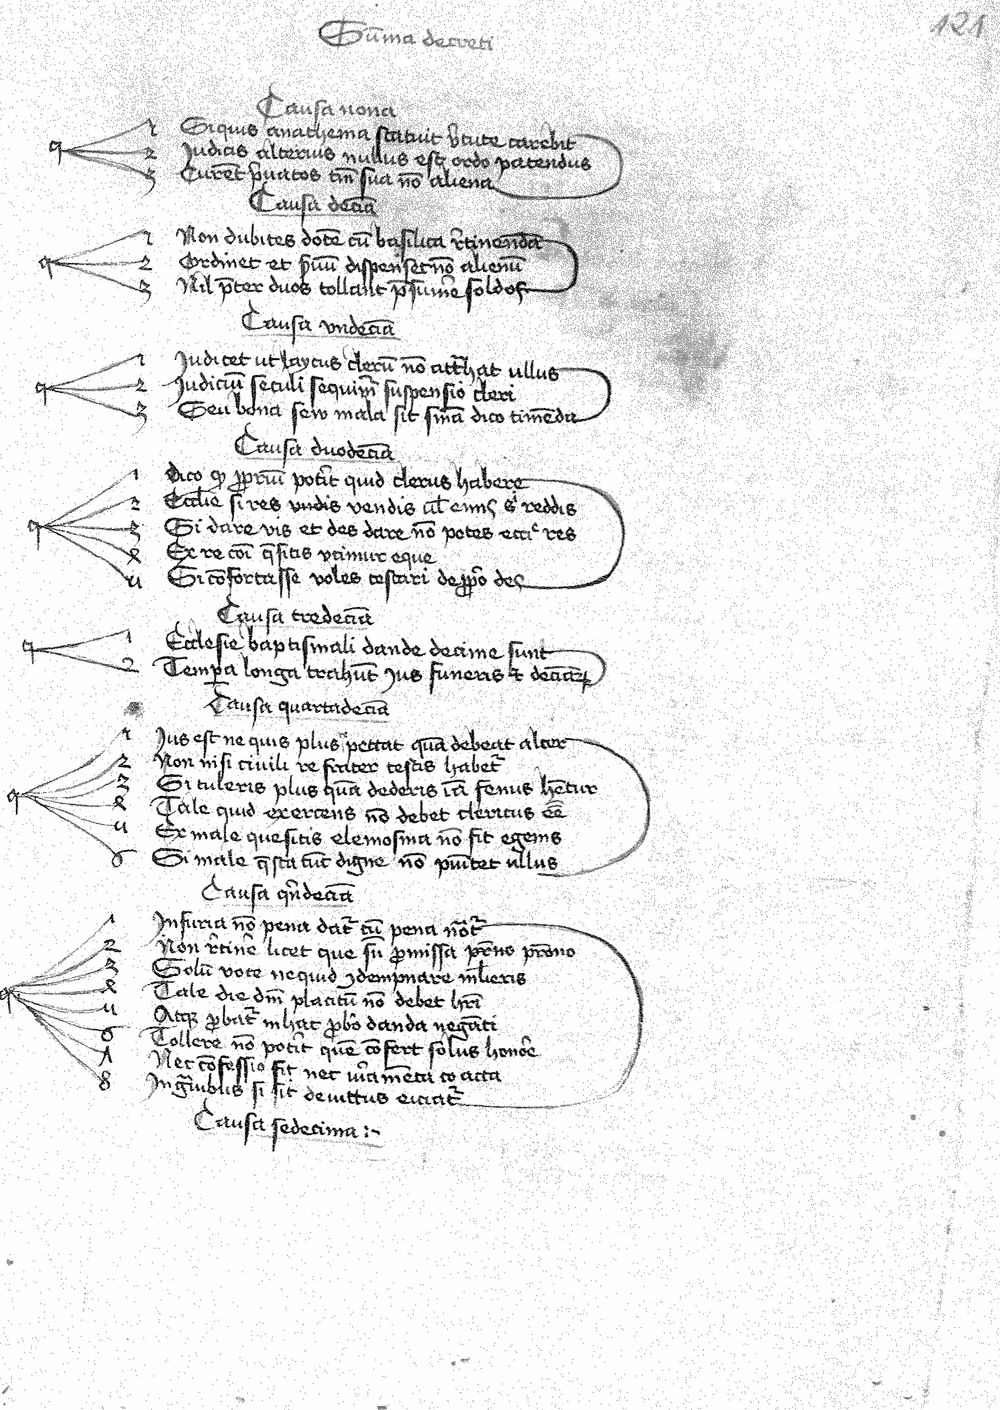 121
Sūma decreti
Causa nona
q 1 Siquis anathema statuit v̄tute carebit
2 Judicis alterius nullus est ordo patendus
3 Curēt p̄uatos tm̄ sua nō aliena
Causa decīa
q 1 Non dubites dotē cū basilica r̄tinendā
2 Ordinet et p̄uū dispenset nō alienū
3 Nil p̄ter duos tollant p̄sumē soldos
Causa vndecīa
q 1 Judicet ut laycus clerū nō att̄hat ullus
2 Judiciū seculi sequim̄ suspensio cleri
3 Seu bona sew mala sit sm̄a dico timēda
Causa duodecīa
q 1 Dico qȝ ꝓpriū potīt quid clerus habere
2 Ecclīe si res vndis vendis reddis
3 Si dare vis et des dare nō potes res
4 Ex re cōi q̄sitis vtimur eque
5 Si cō fortasse voles testari de ꝓpo des
Causa tredecīa
q 1 Ecclesie baptismali dande decime sunt
2 Tempa longa trahūt Jus funeris decīaꝝ
Causa quartadecīa
q 1 Jus est ne quis plus pettat quā debeat alter
2 Non nisi ciuili re frater testis habet᷑
3 Si tuleris plus quā dederis fenus hētur
4 Tale quid exercens nō debet clericus ēē
5 Ex male quesitis elemosina nō fit egenis
6 Si male q̄sta tūc digne nō pūtet ullus
Causa qn̄decīa
q 1 In furia nō pena dat᷑ cū pena nōt᷑
2 Non r̄tinē licet que sū ꝓmissa p̄rno
3 Solū vote nequid ɔdempnare ml̄ieris
4 Tale die dm̄ placitū nō debet hr̄i
5 Atqȝ ꝓbat᷑ inhat ꝓbō danda negāti
6 Tollere nō potīt quē cōfert solus honōe
7 Nec cōfessio sit nec coacta
8 si sit deuictus eiciat᷑
Causa sedecima :~